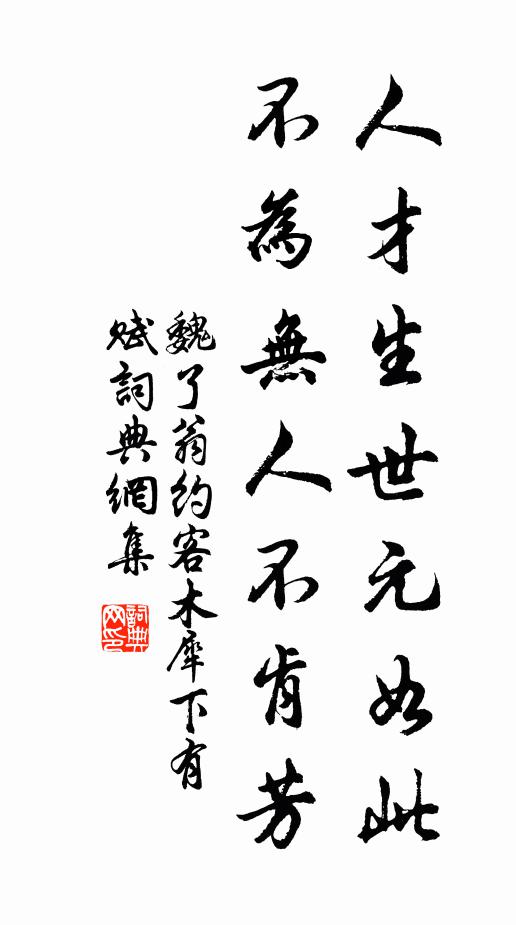 人才生世元如此
不為無人不肯芳
魏了翁約客木犀下有
賦詞典網集
詞典
网印